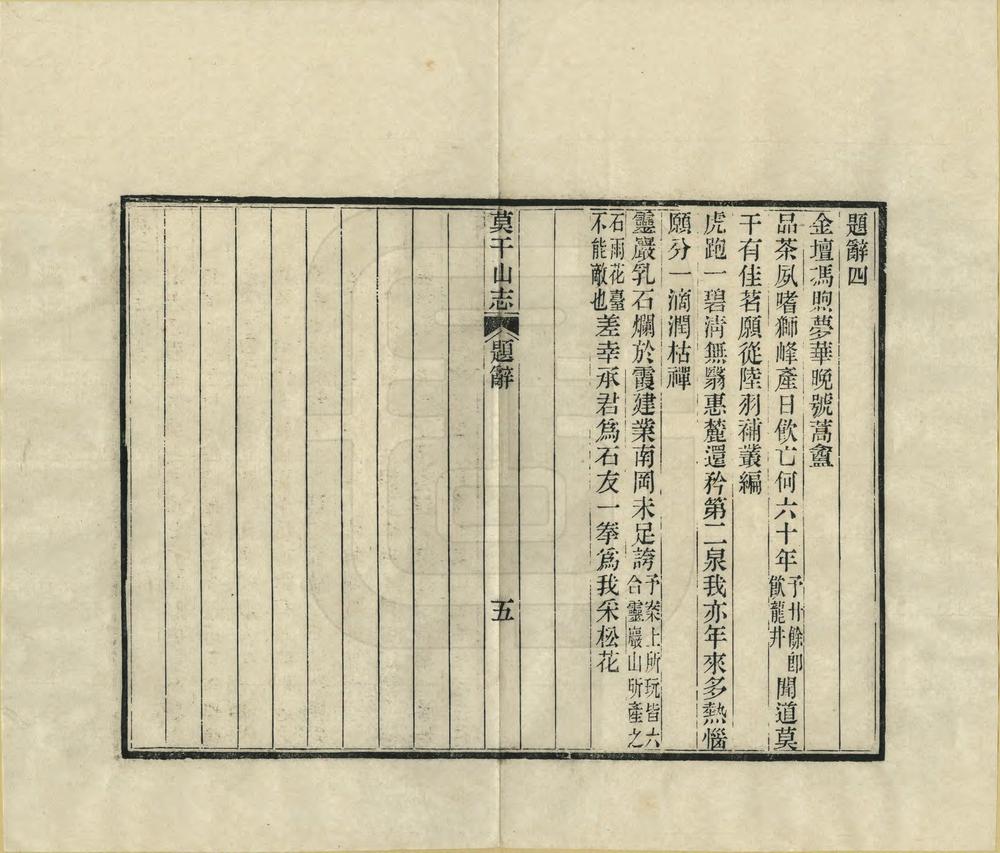 題辭四
金壇馮煦夢華晚號蒿盦
品茶夙嗜獅峰產日飲亡何六十年予廿餘卽飲龍井聞道莫
干有佳茗願從陸羽補叢編
虎跑一碧淸無翳惠麓還矜第二泉我亦年來多熱惱
願分一滴潤枯禪
靈巖乳石爛於霞建業南岡未足誇予案上所玩皆六合靈巖山所產之
石雨花臺不能敵也差幸承君爲石友一拳爲我采松花
莫干山志
題辭
五